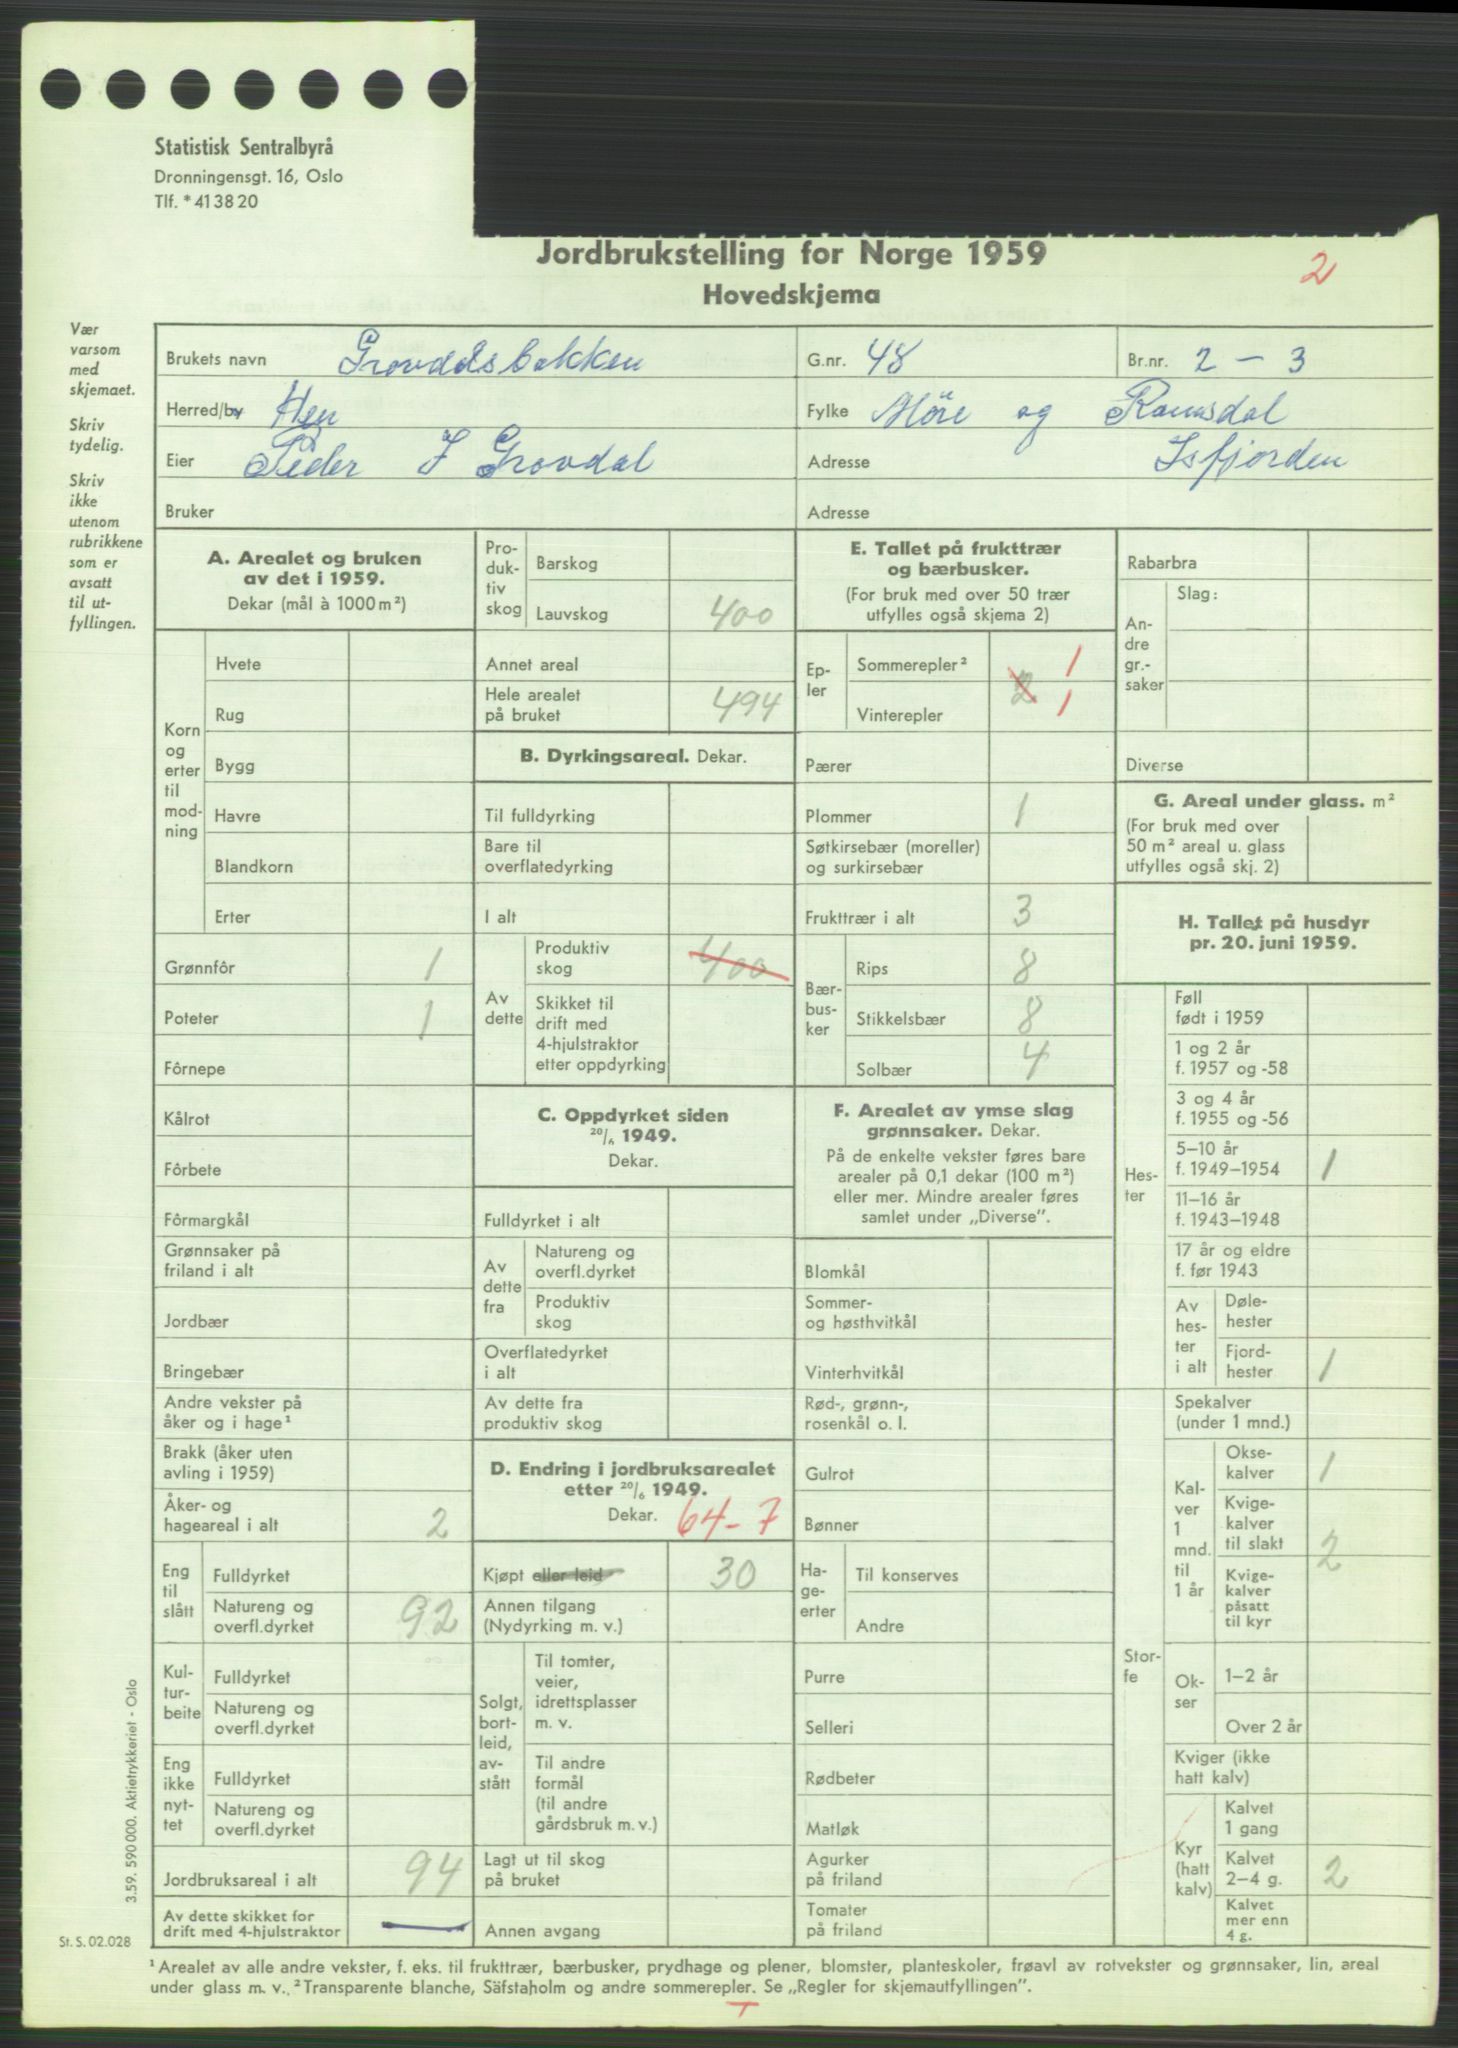 Statistisk Sentralbyrå
Dronningensgt. 16, Oslo
Tlf. * 41 38 20
Jordbrukstelling for Norge 1959
2
Hovedskjema
Vær
varsom
med
skjemaet.
Skriv
tydelig.
Skriv
ikke
utenom
rubrikkene
som er
avsatt
til ut-
fyllingen.
Brukets navn Grovdalsbakken G.nr. 48 Br.nr. 2 – 3
Herred/by Hen Fylke Møre og Romsdal
Eier Peder J Grovdal Adresse Isfjorden
Bruker Adresse
A. Arealet og bruken
av det i 1959.
Dekar (mål à 1000 m²)
Korn
og
erter
til
mod-
ning
Hvete
Rug
Bygg
Havre
Blandkorn
Erter
Grønnfôr 1
Poteter 1
Fôrnepe
Kålrot
Fôrbete
Fôrmargkål
Grønnsaker på
friland i alt
Jordbær
Bringebær
Andre vekster på
åker og i hage¹
Brakk (åker uten
avling i 1959)
Åker- og
hageareal i alt 2
Eng
til
slått
Fulldyrket
Natureng og
overfl.dyrket 92
Kul-
tur-
beite
Fulldyrket
Natureng og
overfl.dyrket
Eng
ikke
nyt-
tet
Fulldyrket
Natureng og
overfl.dyrket
Jordbruksareal i alt 94
Av dette skikket for
drift med 4-hjulstraktor —
Pro-
duk-
tiv
skog
Barskog
Lauvskog 400
Annet areal
Hele arealet
på bruket 494
B. Dyrkingsareal. Dekar.
Til fulldyrking
Bare til
overflatedyrking
I alt
Av
dette
Produktiv
skog 400
Skikket til
drift med
4-hjulstraktor
etter oppdyrking
C. Oppdyrket siden
20/6 1949.
Dekar.
Fulldyrket i alt
Av
dette
fra
Natureng og
overfl.dyrket
Produktiv
skog
Overflatedyrket
i alt
Av dette fra
produktiv skog
D. Endring i jordbruksarealet
etter 20/6 1949.
Dekar. 64-7
Kjøpt eller leid 30
Annen tilgang
(Nydyrking m. v.)
Solgt,
bort-
leid,
av-
stått
Til tomter,
veier,
idrettsplasser
m. v.
Til andre
formål
(til andre
gårdsbruk m. v.)
Lagt ut til skog
på bruket
Annen avgang
E. Tallet på frukttrær
og bærbusker.
(For bruk med over 50 trær
utfylles også skjema 2)
Ep-
ler
Sommerepler² 1
2
Vinterepler 1
Pærer
Plommer 1
Søtkirsebær (moreller)
og surkirsebær
Frukttrær i alt 3
Bær-
bus-
ker
Rips 8
Stikkelsbær 8
Solbær 4
F. Arealet av ymse slag
grønnsaker. Dekar.
På de enkelte vekster føres bare
arealer på 0,1 dekar (100 m²)
eller mer. Mindre arealer føres
samlet under „Diverse".
Blomkål
Sommer-
og høsthvitkål
Vinterhvitkål
Rød-, grønn-,
rosenkål o. l.
Gulrot
Bønner
Ha-
ge-
erter
Til konserves
Andre
Purre
Selleri
Rødbeter
Matløk
Agurker
på friland
Tomater
på friland
Rabarbra
An-
dre
gr.-
saker
Slag:
Diverse
G. Areal under glass. m²
(For bruk med over
50 m² areal u. glass
utfylles også skj. 2)
H. Tallet på husdyr
pr. 20. juni 1959.
Hes-
ter
Føll
født i 1959
1 og 2 år
f. 1957 og -58
3 og 4 år
f. 1955 og -56
5–10 år
f. 1949–1954 1
11–16 år
f. 1943–1948
17 år og eldre
f. før 1943
Av
hes-
ter
i alt
Døle-
hester
Fjord-
hester 1
Stor-
fe
Spekalver
(under 1 mnd.)
Kal-
ver
1
mnd.
til
1 år
Okse-
kalver 1
Kvige-
kalver
til slakt 2
Kvige-
kalver
påsatt
til kyr
Ok-
ser
1–2 år
Over 2 år
Kviger (ikke
hatt kalv)
Kyr
(hatt
kalv)
Kalvet
1 gang
Kalvet
2–4 g. 2
Kalvet
mer enn
4 g.
3.59. 590 000. Aktietrykkeriet - Oslo
St. S. 02.028
¹ Arealet av alle andre vekster, f. eks. til frukttrær, bærbusker, prydhage og plener, blomster, planteskoler, frøavl av rotvekster og grønnsaker, lin, areal
under glass m. v. ² Transparente blanche, Säfstaholm og andre sommerepler. Se „Regler for skjemautfyllingen".